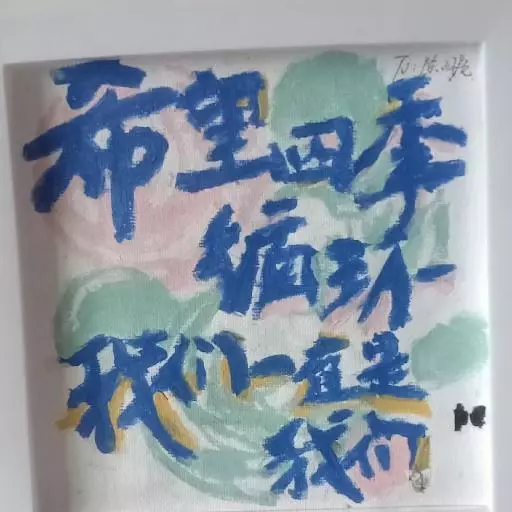 To:陈
希望四季
循环
我们一直是
我们